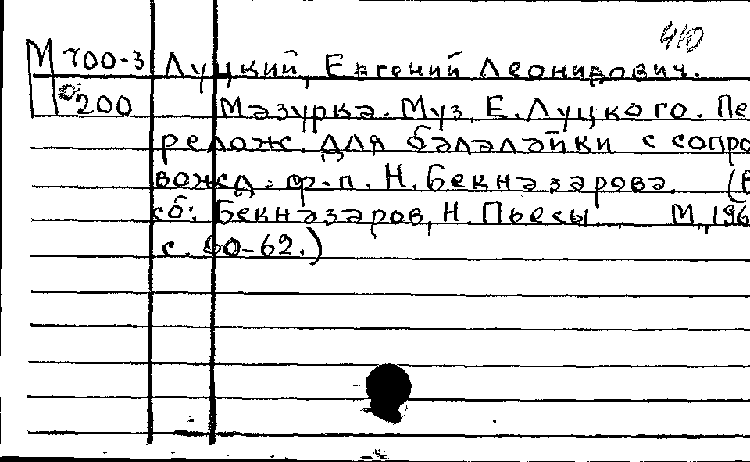 410
М 700-3 Луцкий, Евгений Леонидович.
200 Мазурка. Муз. Е. Луцкого. Пе
релож. для балалайки с сопро
вожд. ф-п. Н. Бекназарова. (В
сб: Бекназаров, Н. Пьесы М., 196
с. 60-62.)